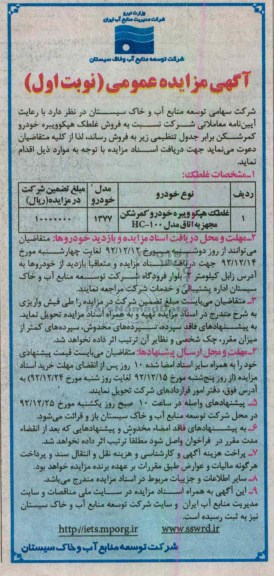 وزارت نیرو
شرکت مدیریت منابع آب ایران
شرکت توسعه منابع آب وخاک سیستان
آگهی مزایده عمومی (نوبت اول)
شرکت سهامی توسعه منابع آب و خاک سیستان در نظر دارد با رعایت
آیین‌نامه معاملاتی شرکت نسبت به فروش غلطک هپکوویبره خودرو
کمرشکن برابر جدول تنظیمی زیر به فروش رساند، لذا از کلیه متقاضیان
دعوت می‌نماید جهت دریافت اسناد مزایده با توجه به موارد ذیل اقدام
نماید.
۱-مشخصات غلطک:
ردیف نوع خودرو مدل خودرو مبلغ تضمین شرکت در مزایده (ریال)
۱ غلطک هپکو ویبره خودرو کمرشکن مجهز به اتاق مدل HC-۱۰۰ ۱۳۷۷ ۱۰۰۰۰۰۰۰
۲-مهلت و محل دریافت اسناد مزایده و بازدید خودروها: متقاضیان
می‌توانند از روز دوشنبه مورخ ۹۲/۱۲/۱۲ لغایت چهارشنبه مورخ
۹۲/۱۲/۱۴ جهت دریافت اسناد مزایده و متعاقبا بازدید از خودروها به
آدرس زابل کیلومتر ۳ بلوار فرودگاه شرکت توسعه منابع آب و خاک
سیستان اداره پشتیبانی و خدمات شرکت مراجعه نمایند.
متقاضیان می‌بایست مبلغ تضمین شرکت در مزایده را طی فیش واریزی
به شرح مندرج در اسناد مزایده تهیه و به همراه اسناد مزایده تحویل نمایند.
به پیشنهادهای فاقد سپرده، سپرده‌های مخدوش، سپرده‌های کمتر از
میزان مقرر، چک شخصی و نظایر آن ترتیب اثر داده نخواهد شد.
۳-مهلت و محل ارسال پیشنهادها: متقاضیان می‌بایست قیمت پیشنهادی
خود را به همراه سایر اسناد امضا شده ۱۰ روز پس از انقضای مهلت خرید اسناد
مزایده (از روز پنج‌شنبه مورخ ۹۲/۱۲/۱۵ لغایت روز شنبه مورخ ۹۲/۱۲/۲۴) به
آدرس فوق، دفتر امور قراردادهای شرکت تحویل نمایند.
۵- پیشنهادهای واصله در ساعت ۱۰ صبح روز یکشنبه مورخ ۹۲/۱۲/۲۵
در محل شرکت توسعه منابع آب و خاک سیستان باز و قرائت می‌شود.
۶- به پیشنهادهای فاقد امضاء، مخدوش و پیشنهادهایی که بعد از انقضاء
مدت مقرر در فراخوان واصل شود مطلقا ترتیب اثر داده نخواهد شد.
۷- پراخت هزینه آگهی و کارشناسی و هزینه نقل و انتقال سند و پرداخت
هرگونه مالیات و عوارض طبق مقررات بر عهده برنده مزایده خواهد بود.
۸- سایر اطلاعات و جزییات مربوط در اسناد مزایده مندرج می‌باشد.
۹- این آگهی به همراه اسناد مزایده در سایت ملی مناقصات و سایت
مدیریت منابع آب ایران و سایت شرکت توسعه منابع آب و خاک سیستان
نیز به ثبت رسیده است.
http://iets.mporg.ir www.sswrd.ir
شرکت توسعه منابع آب و خاک سیستان